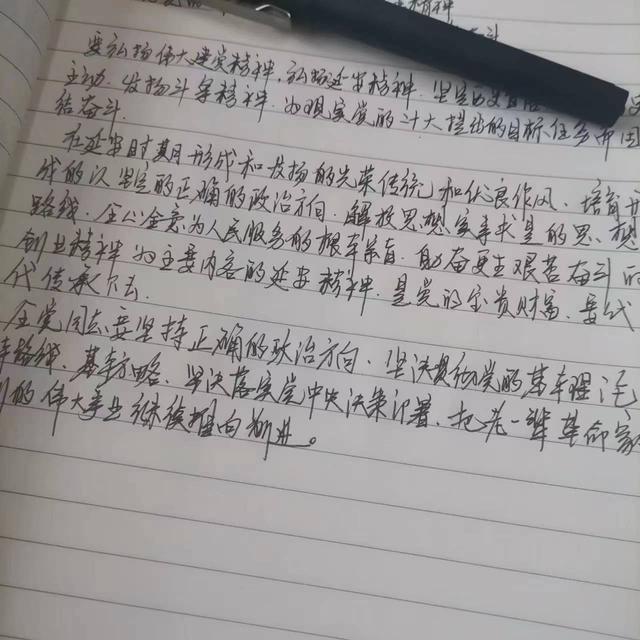 精神
斗
要弘扬伟大建党精神，弘扬延安精神，坚定历史自信
主动，发扬斗争精神，为现实党的二十大提出的目标任务而团
结奋斗.
在延安时期形成和发扬的光荣传统和优良作风、培育形
成的以坚定的正确的政治方向、解放思想实事求是的思想
路线、全心全意为人民服务的根本宗旨、自力更生艰苦奋斗的
创业精神为主要内容的延安精神，是党的宝贵财富，要代
代传承下去.
全党同志要坚持正确的政治方向、坚决贯彻党的基本理论
本路线、基本方略、坚决落实党中央决策部署、把老一辈革命家
的伟大事业继续推向前进。